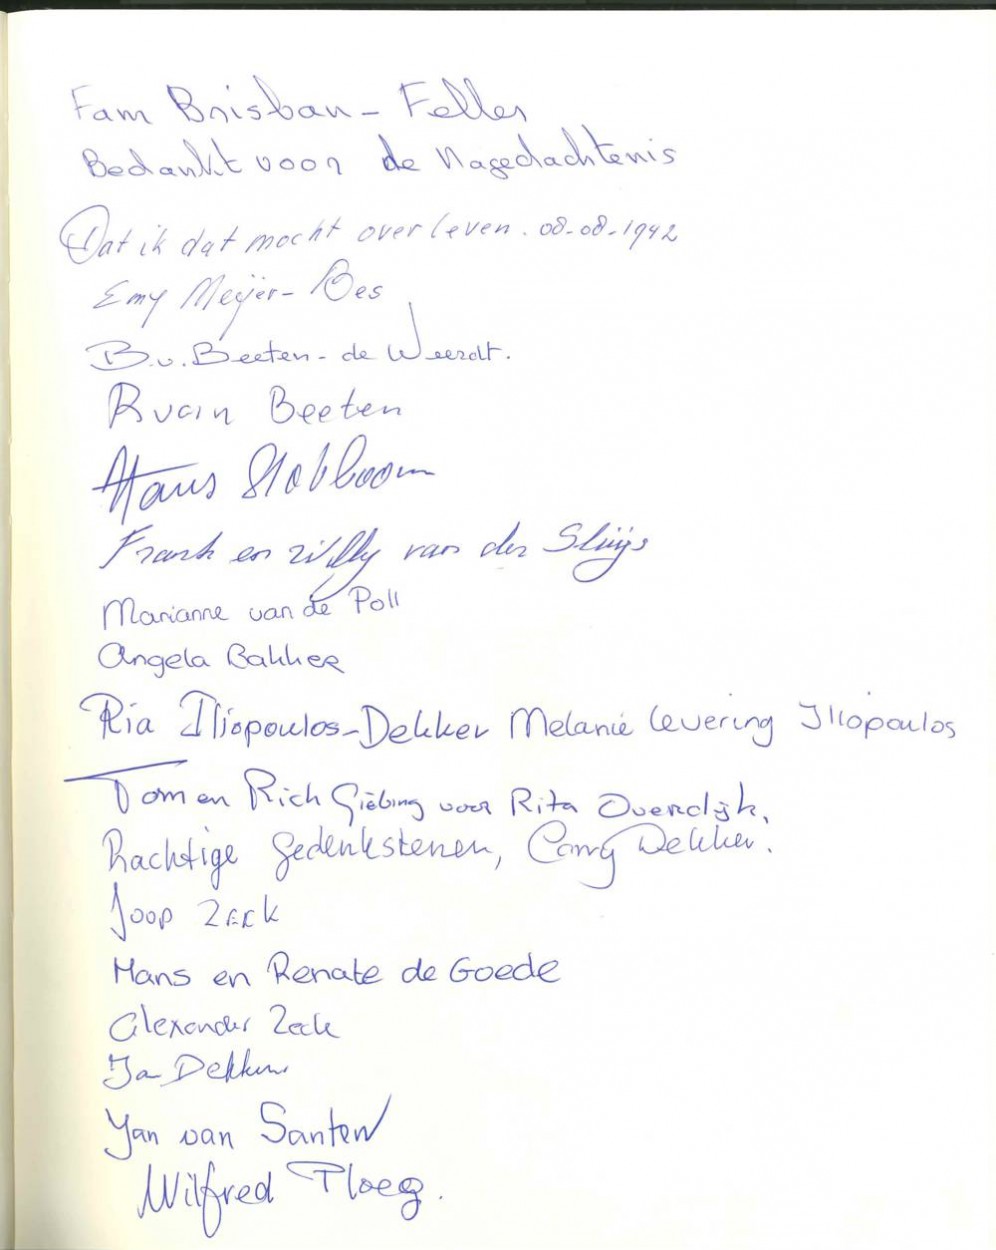 Fam Brisban - Feller
Bedankt voor de Nagedachtenis
Dat ik dat mocht overleven. 08-08-1942
Emy Meijer- Bes
B.v. Beeten - de Weerdt.
R van Beeten
Hans Stobboom
Frank en Willy van der Sluijs
Marianne van de Poll
Angela Bakker
Ria Iliopoulos-Dekker Melanie Levering Iliopoulos
Tom en Rich Giebing voor Rita Overdijk.
Prachtige gedenkstenen, Corry Dekker.
Joop Zeck
Hans en Renate de Goede
Alexander Zeck
Ja Dekker
Jan van Santen
Wilfred Ploeg.